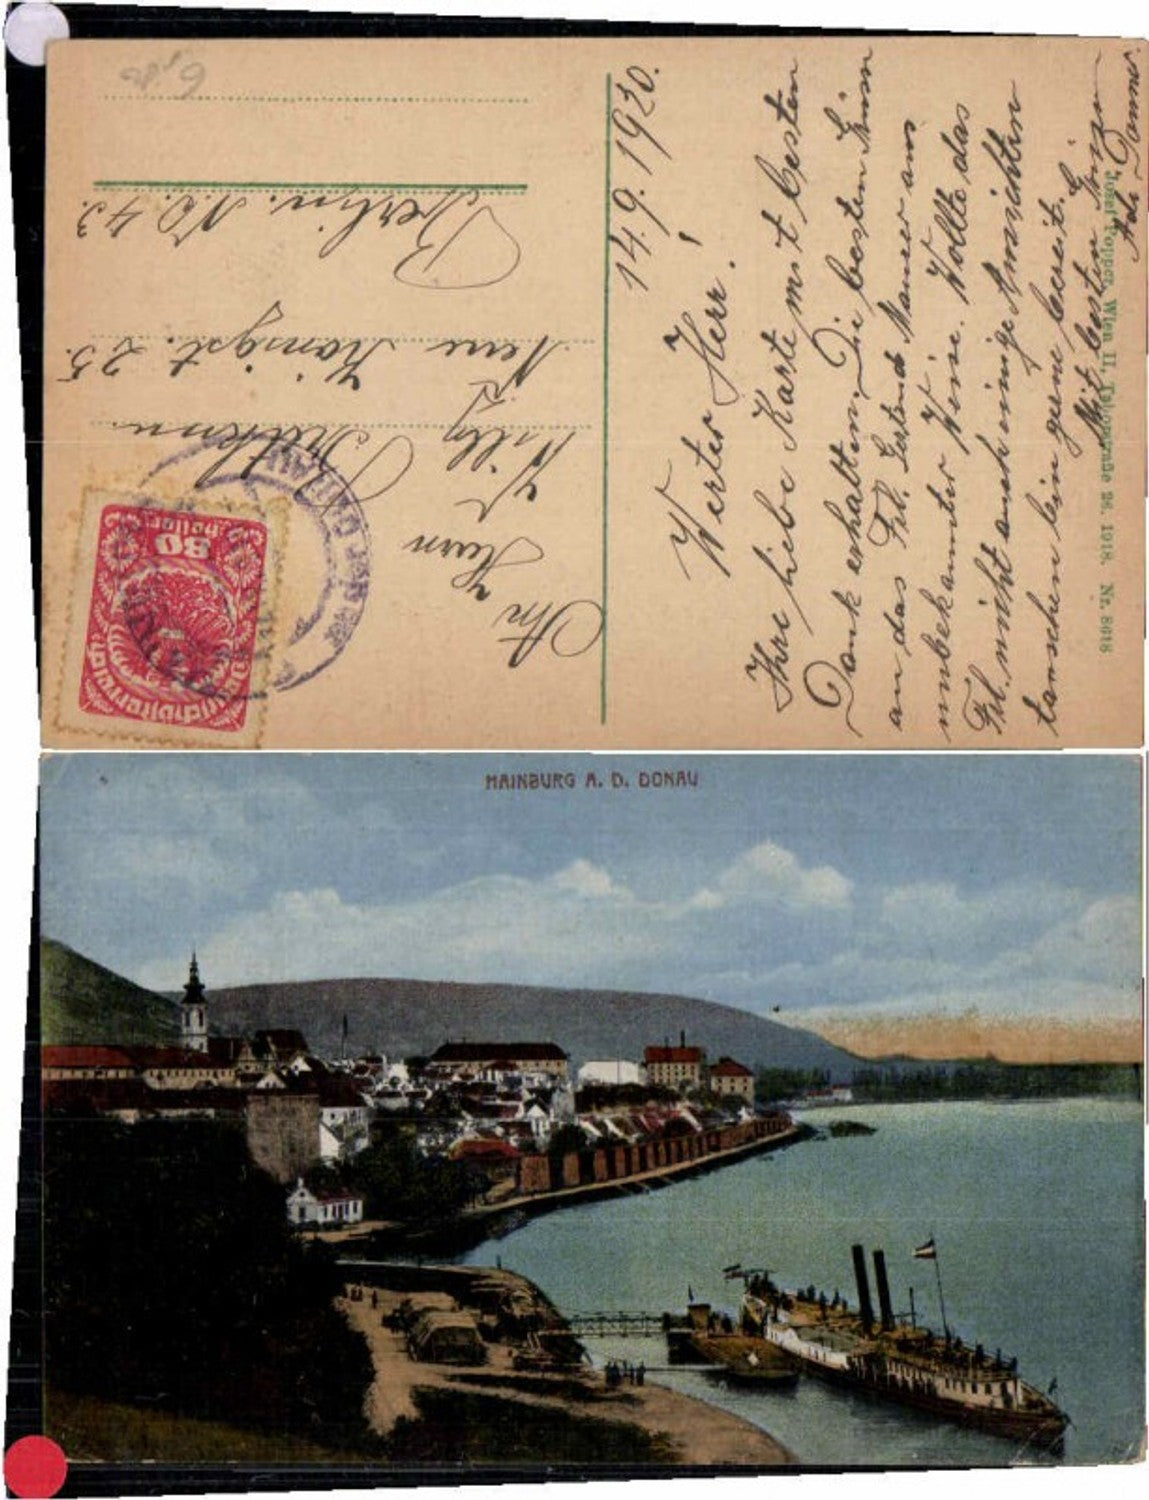 14.9.1920.
Werter Herr!
Ihre liebe Karte mit besten
Dank erhalten. Die besten Grüsse
an das Frl. Gertrud Maurer aus
unbekannter Weise. Wollte das
Frl. nicht auch einige Ansichten
tauschen bin gerne bereit.
Mit besten Grüsse
An
Herrn
Willy
Neue Königst. 25.
Berlin. NO. 43.
80
heller
Josef Popper, Wien II, Taborstraße 26. 1918. Nr. 8618
HAINBURG A. D. DONAU